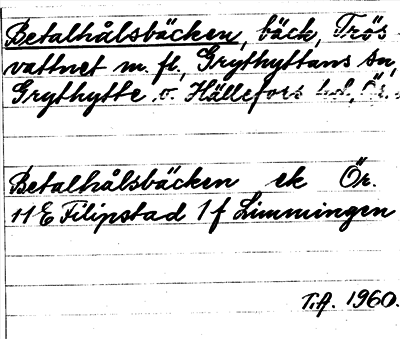 Betalhålsbäcken, bäck, Trös
vattnet m. fl., Grythyttans sn,
Grythytte o. Hällefors hd, Ör.
Betalhålsbäcken ek Ör.
11E Filipstad 1f Limmingen
T.A. 1960.